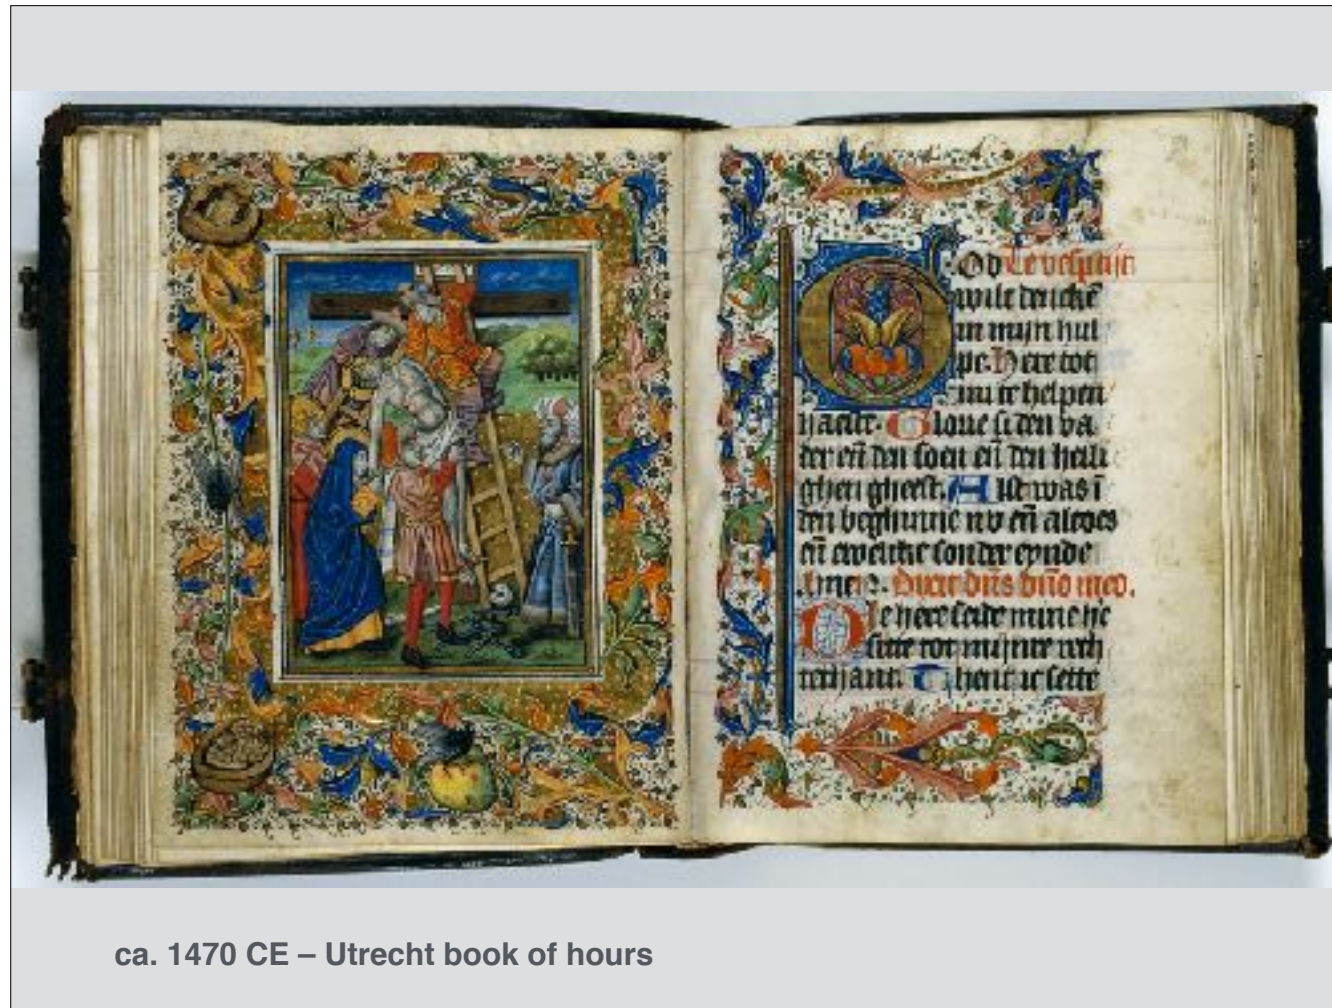 God Te vesp̄tijt
wilt dencke̅
in mijn hul
pe. Here tot
mi te helpen
haeste. Glorie si den va
der en̅ den soen en̅ den heili
ghen gheest. Als t was ī
den beghinne nv en̅ altoes
en̅ ewelike sonder eynde
Amen. Dixit dn̄s dn̄o meo.
Die here seide minē he
sitte tot mijnre rech
terhant. Thent ic sette
ca. 1470 CE – Utrecht book of hours